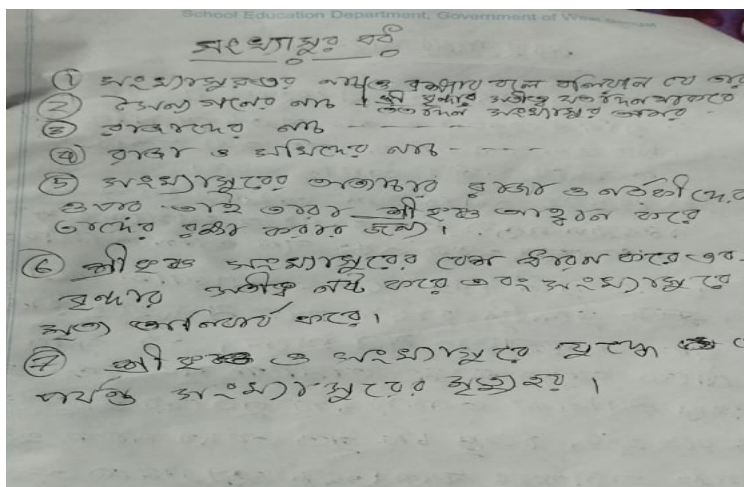 School Education Department, Government of West Bengal
সংখ্যাসুর বধ
① সংখ্যাসুরকে বলে যে তার
② সৈন্য গনের নাম স্ত্রী বৃন্দার সতীত্ব যতদিন থাকবে ততদিন সংখ্যাসুর অমর
③ রাজাদের নাম - - - - -
④ রাজা ও ঋষিদের নাম - - - -
⑤ সংখ্যাসুরের অত্যাচার রাজা ও নর্তকীদের
ওপর তাই তারা শ্রীকৃষ্ণ আহ্বান করে
তাদের রক্ষা করার জন্য।
⑥ শ্রীকৃষ্ণ সংখ্যাসুরের বেশ ধারন করে এব
বৃন্দার সতীত্ব নষ্ট করে এবং সংখ্যাসুরে
মৃত্যু অনিবার্য করে।
⑦ শ্রীকৃষ্ণ ও সংখ্যাসুরে যুদ্ধে
পর্যন্ত সংখ্যাসুরের মৃত্যু হয়।